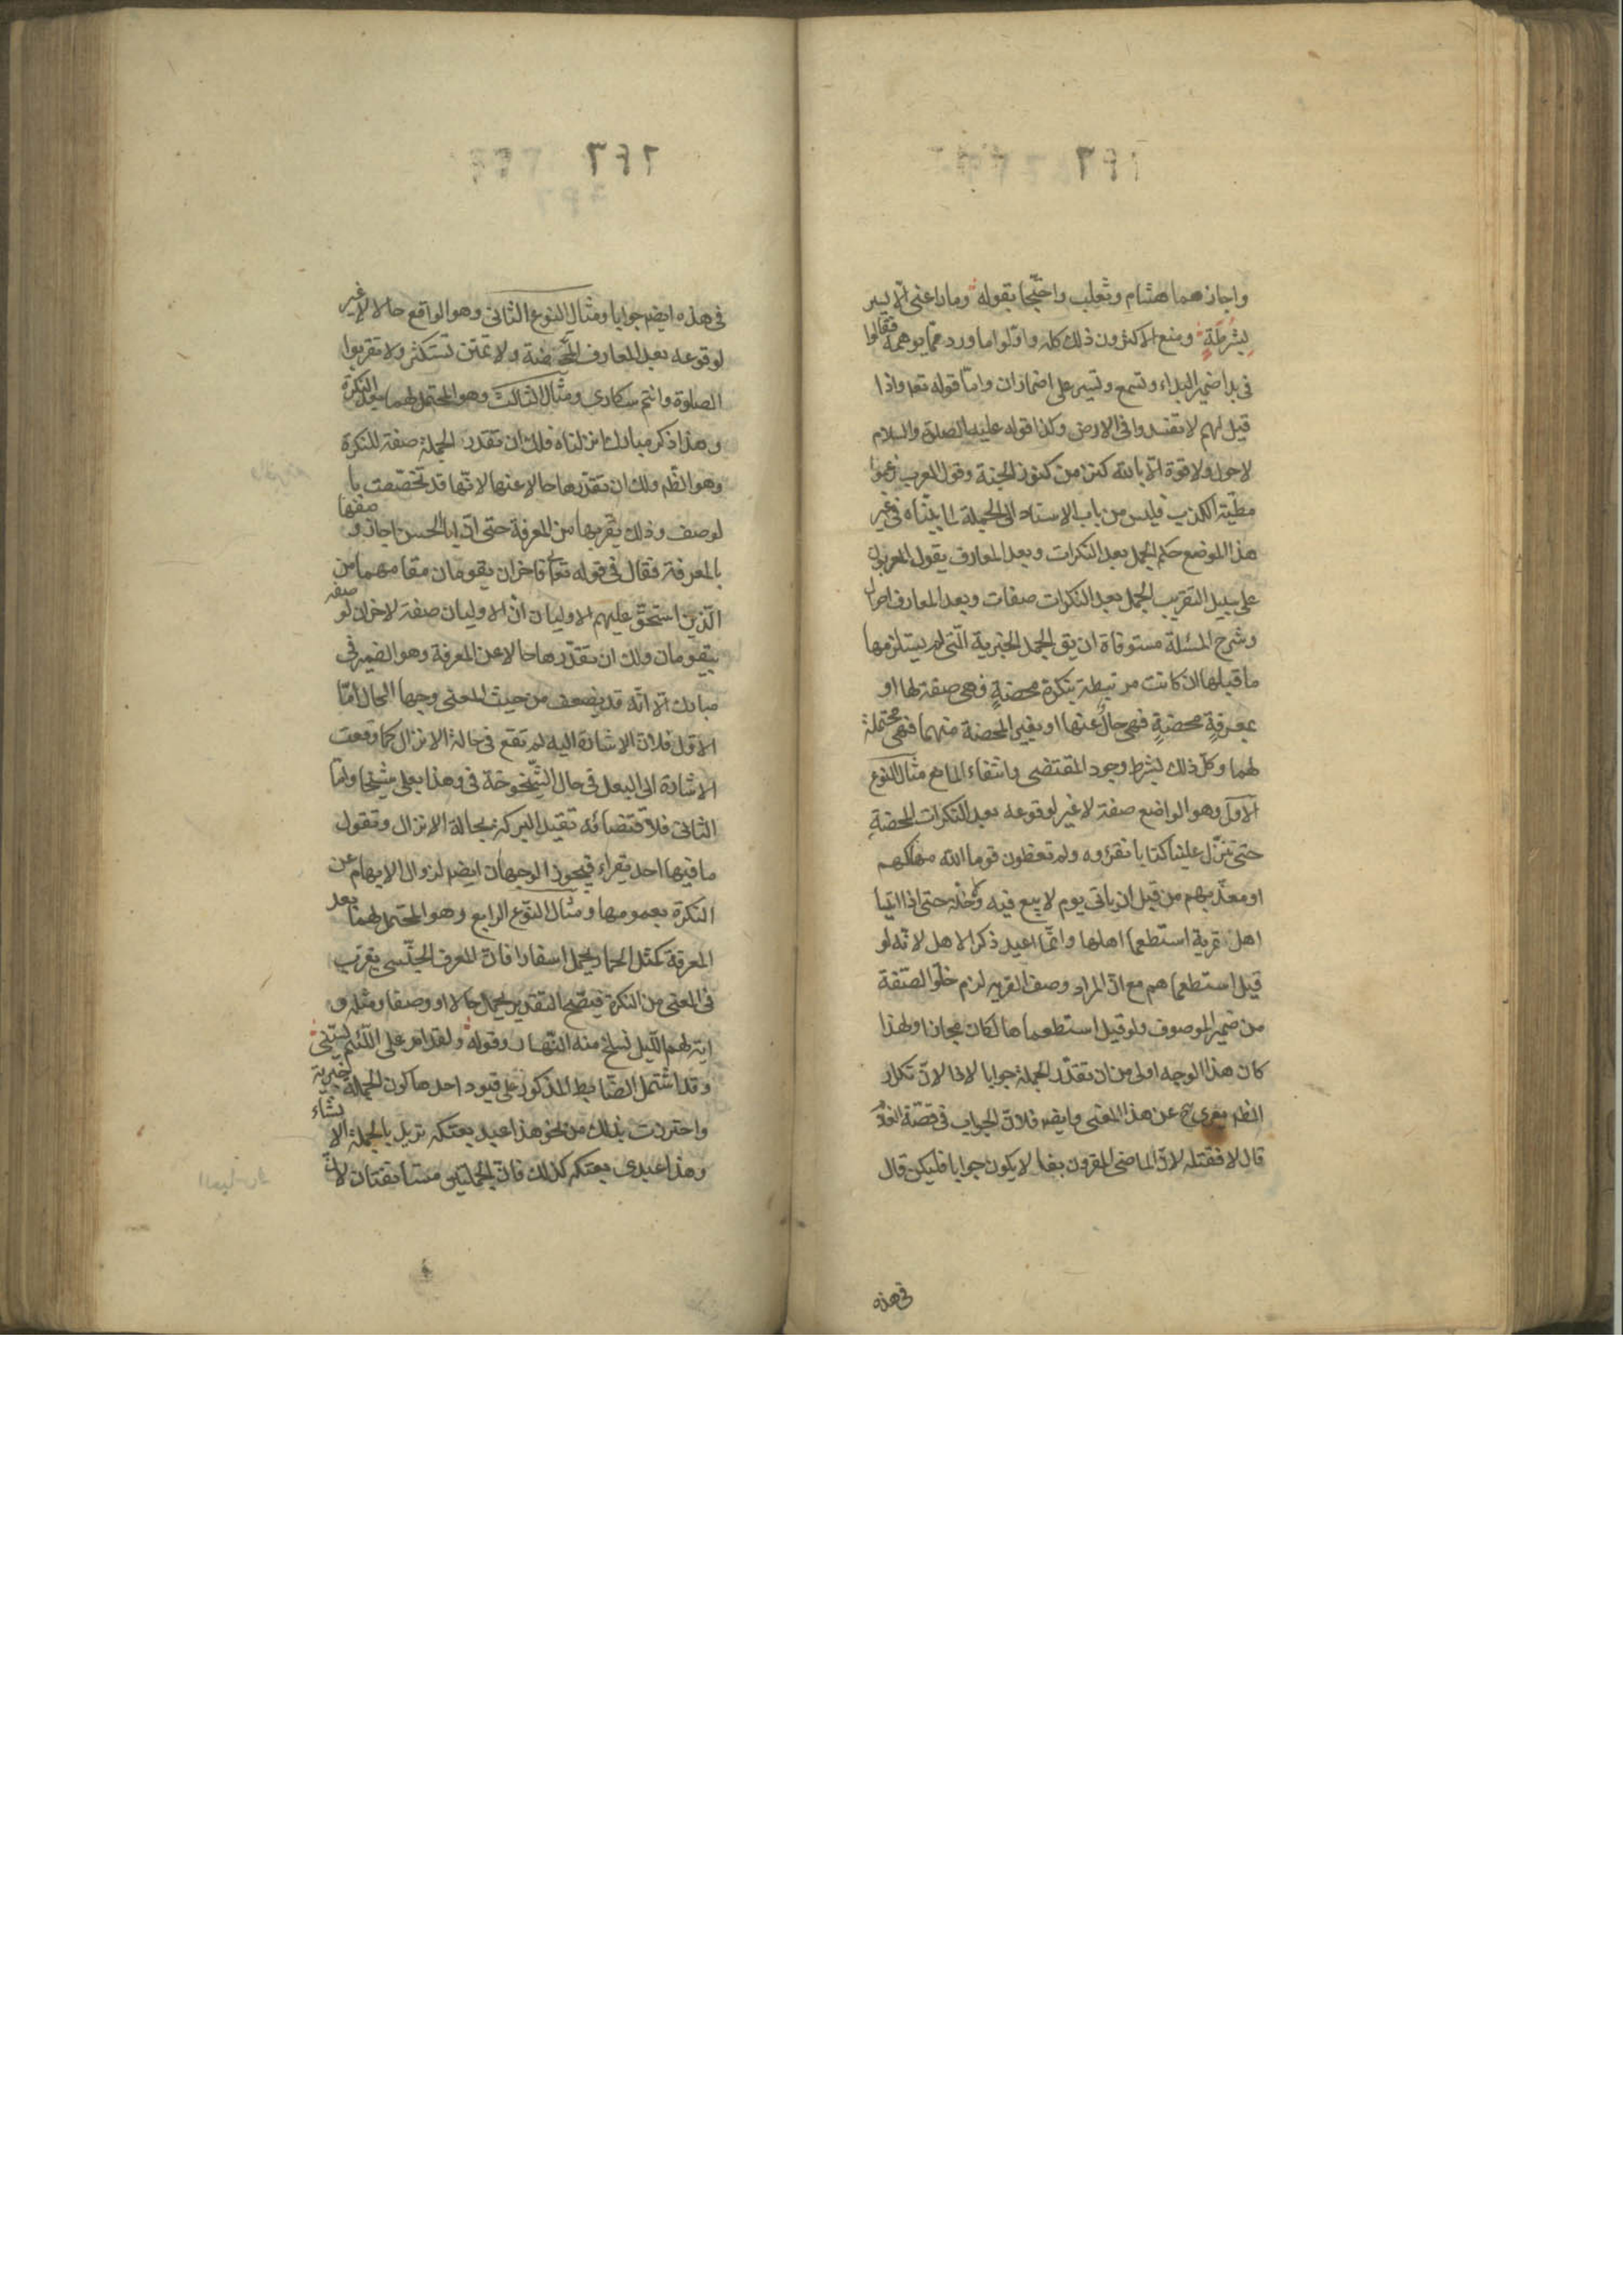 واجازهما هشام وثعلب واحتجّا بقوله وما راعنى الّا يسير
بشُرطَةٍ ومنع الاكثرون ذلك كله واوّلوا ما ورد ممّا يوهمه فقالوا
فى بدا ضمير البداء وتسمع ويسير على اضمار ان وامّا قوله تعه واذا
قيل لهم لا تفسدوا فى الارض وكذا قوله عليه الصلوة والسلام
لا حول ولا قوة الّا بالله كنز من كنوز الجنة وقول العرب زعموا
مطيّة الكذب فليس من باب الاسناد الى الجملة لما بيّناه فى غير
هذا الموضع حكم الجمل بعد النكرات وبعد المعارف يقول المعربون
على سبيل التقريب الجمل بعد النكرات صفات وبعد المعارف احوال
وشرح المسئلة مستوفاة ان يق الجمل الخبرية الّتى لم يستلزمها
ما قبلها ان كانت مرتبطة بنكرة محضةٍ فهى صفة لها او
بمعرفةٍ محضةٍ فهى حالٌ عنها او بغير المحضة منهما فهى محتملة
لهما وكلّ ذلك بشرط وجود المقتضى وانتفاء المانع مثال النوع
الاوّل وهو الواضع صفة لا غير لوقوعه بعد النكرات المحضةِ
حتى تنزّل علينا كتابا نقرؤه ولم تعظون قوما الله مهلكهم
او معذّبهم من قبل ان ياتى يوم لا بيع فيه ولا خلة حتى اذا اتيا
اهل قرية استطعما اهلها وانّما اعيد ذكر الاهل لانّه لو
قيل استطعماهم مع انّ المراد وصف القرية لزم خلوّ الصّفة
من ضمير الموصوف ولو قيل استطعماها لكان مجازا ولهذا
كان هذا الوجه اولى من ان تقدّر الجملة جوابا لاذا لانّ تكرار
الظه يعرى ح عن هذا المعنى وايضه فلانّ الجواب فى قصّة الغلام
قال لا فقتله لانّ الماضى المقرون بفا لا يكون جوابا فليكن قال
فى هذه
٢٩٦
فى هذه ايضه جوابا ومثال النوع الثانى وهو الواقع حالا لا غير
لوقوعه بعد المعارف المحضة ولا تمنن تستكثر ولا تقربوا
الصلوة وانتم سكارى ومثال الثالث وهو المحتمل لهما بعد النكرة
وهذا ذكر مبارك انزلناه فلك ان تقدر الجملة صفة للنكرة
وهو الظّه ولك ان تقدّرها حالا عنها لانّها قد تخصّصت با
لوصف وذلك يقرّبها من المعرفة حتى انّ ابا الحسن اجاز وصفها
بالمعرفة فقال فى قوله تعالى فاخران يقومان مقامهما من
الّذين استحقّ عليهم الاوليان انّ الاوليان صفة لاخران لوصفه
بيقومان ولك ان تقدّرها حالا عن المعرفة وهو الضمير فى
مبارك الّا انّه قد يضعف من حيث المعنى وجها الحال امّا
الاوّل فلانّ الاشارة اليه لم تقع فى حالة الانزال كما وقعت
الاشارة الى البعل فى حال الشّيخوخة فى وهذا بعلى شيخا وامّا
الثانى فلاقتضائه تقييد البركة بحالة الانزال وتقول
ما فيها احد يقراء فيجوز الوجهان ايضه لزوال الابهام عن
النكرة بعمومها ومثال النّوع الرابع وهو المحتمل لهما بعد
المعرفة كمثل الحمار يحمل اسفارا فانّ المعرف الجنّسى يقرب
فى المعنى من النكرة فيصّح التقدير يحمل حالا او وصفا ومثله و
اية لهم اللّيل نسلخ منه النّهار وقوله ولقد امر على اللّئيم يسبّنى
وقد اشتمل الضّابط المذكور على قيود احدها كون الجملة خبرية
واحترزت بذلك من نحو هذا عبد بعتكه تريد بالجملة الانشاء
وهذا عبدى بعتكه كذلك فانّ الجملتين مستأنفتان لانّ